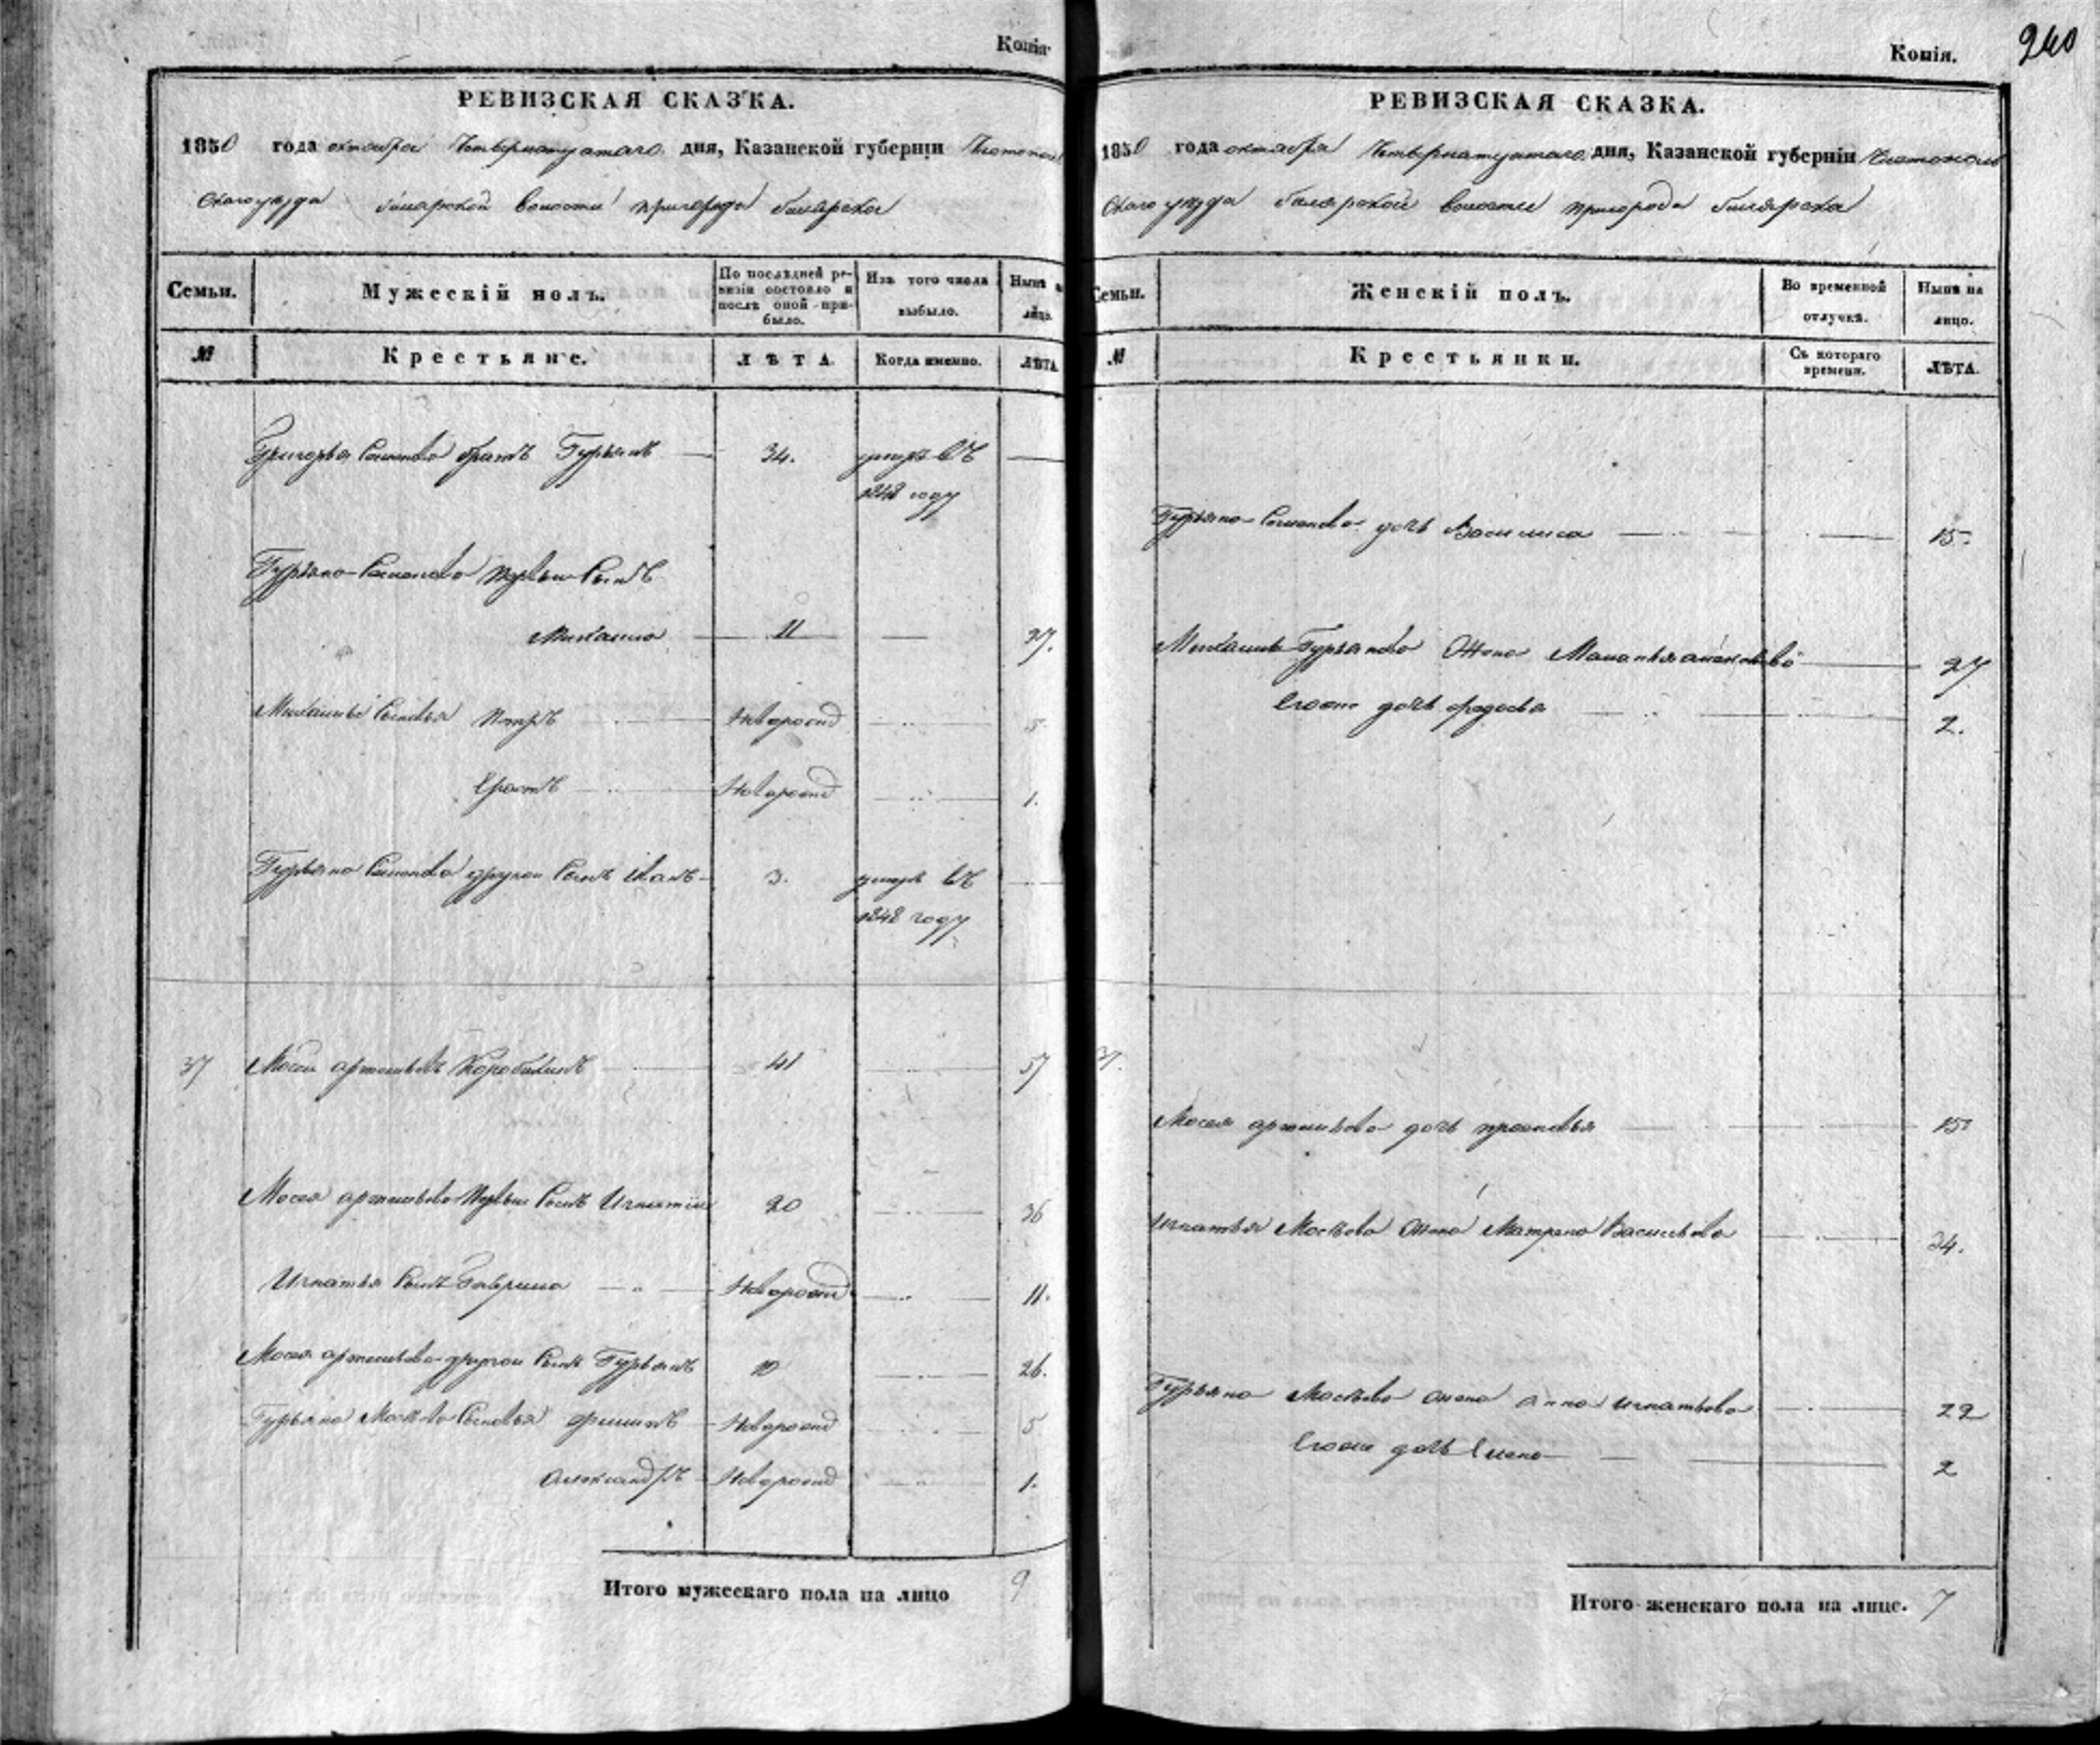 Копія.
РЕВИЗСКАЯ СКАЗКА.
1850 года октября Четвернатцатаго дня, Казанской губерніи Чистополь
скаго уезда билярской волости пригорода билярска
Семьи.
Мужескій полъ.
По послѣдней ре-
визіи состояло и
послѣ оной при-
было.
Изъ того числа
выбыло.
Нынѣ на
лицо.
№
Крестьяне.
ЛѢТА.
Когда именно.
ЛѢТА.
Григорья Семенова братъ Гурьянъ 34. умеръ въ
1848 году
Гурьяна Семенова первый сынъ
Михаила 11 27.
Михайлы сыновья Петръ Новорожд 5
Ерастъ Новорожд 1.
Гурьяна Семенова другой сынъ Иванъ 3. умеръ въ
1848 году
37 Мосей артемьевъ Коробихинъ 41 57
Мосея артемьева первый сынъ Игнатий 20 36
Игнатья сынъ Гаврила Новорожд 11.
Мосея артемьева другой сынъ Гурьянъ 10 26.
Гурьяна Мосѣева сыновья Новорожд 5
Александръ Новорожд 1.
Итого мужескаго пола на лицо 9
Копія.
240
РЕВИЗСКАЯ СКАЗКА.
1850 года октября Четвернатцатаго дня, Казанской губерніи Чистополь
скаго уезда билярской волости пригорода билярска
Семьи.
Женскій полъ.
Во временной
отлучкѣ.
Нынѣ на
лицо.
№
Крестьянки.
Съ котораго
времени.
ЛѢТА.
Гурьяна Семенова дочь Василиса 15.
Михайлы Гурьянова жена Маланья 27
Егоже дочь федосья 2.
37.
Мосея артемьева дочь прасковья 15
Игнатья Мосѣева жена Матрена Васильева 34.
Гурьяна Мосѣева жена анна игнатьева 22
Егоже дочь Елена 2
Итого женскаго пола на лицо. 7